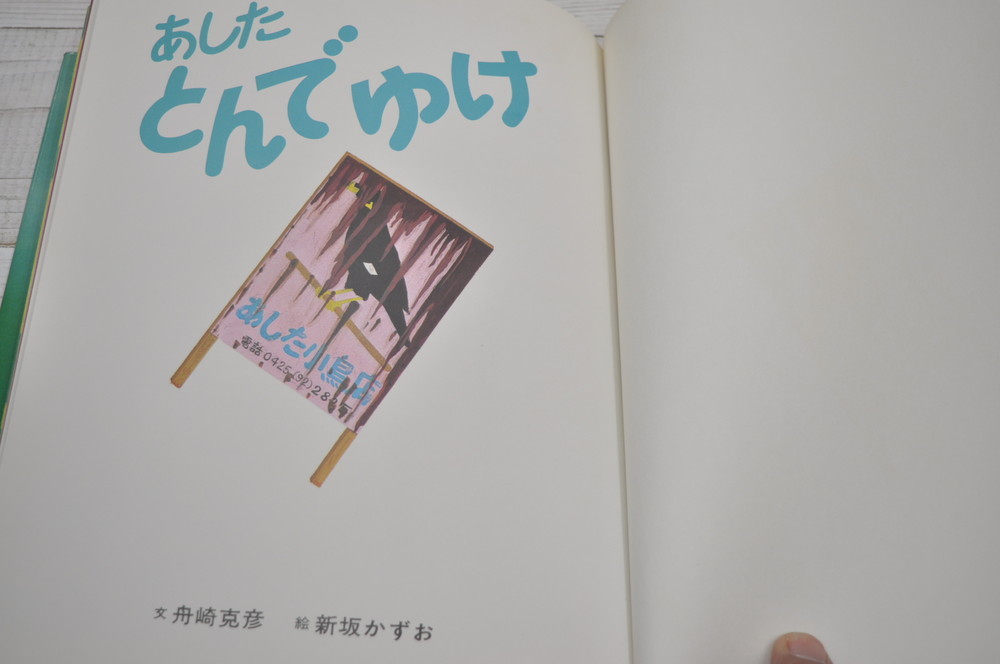 あした
とんでゆけ
あした小鳥店
電話0425(92)282
文 舟崎克彦 絵 新坂かずお